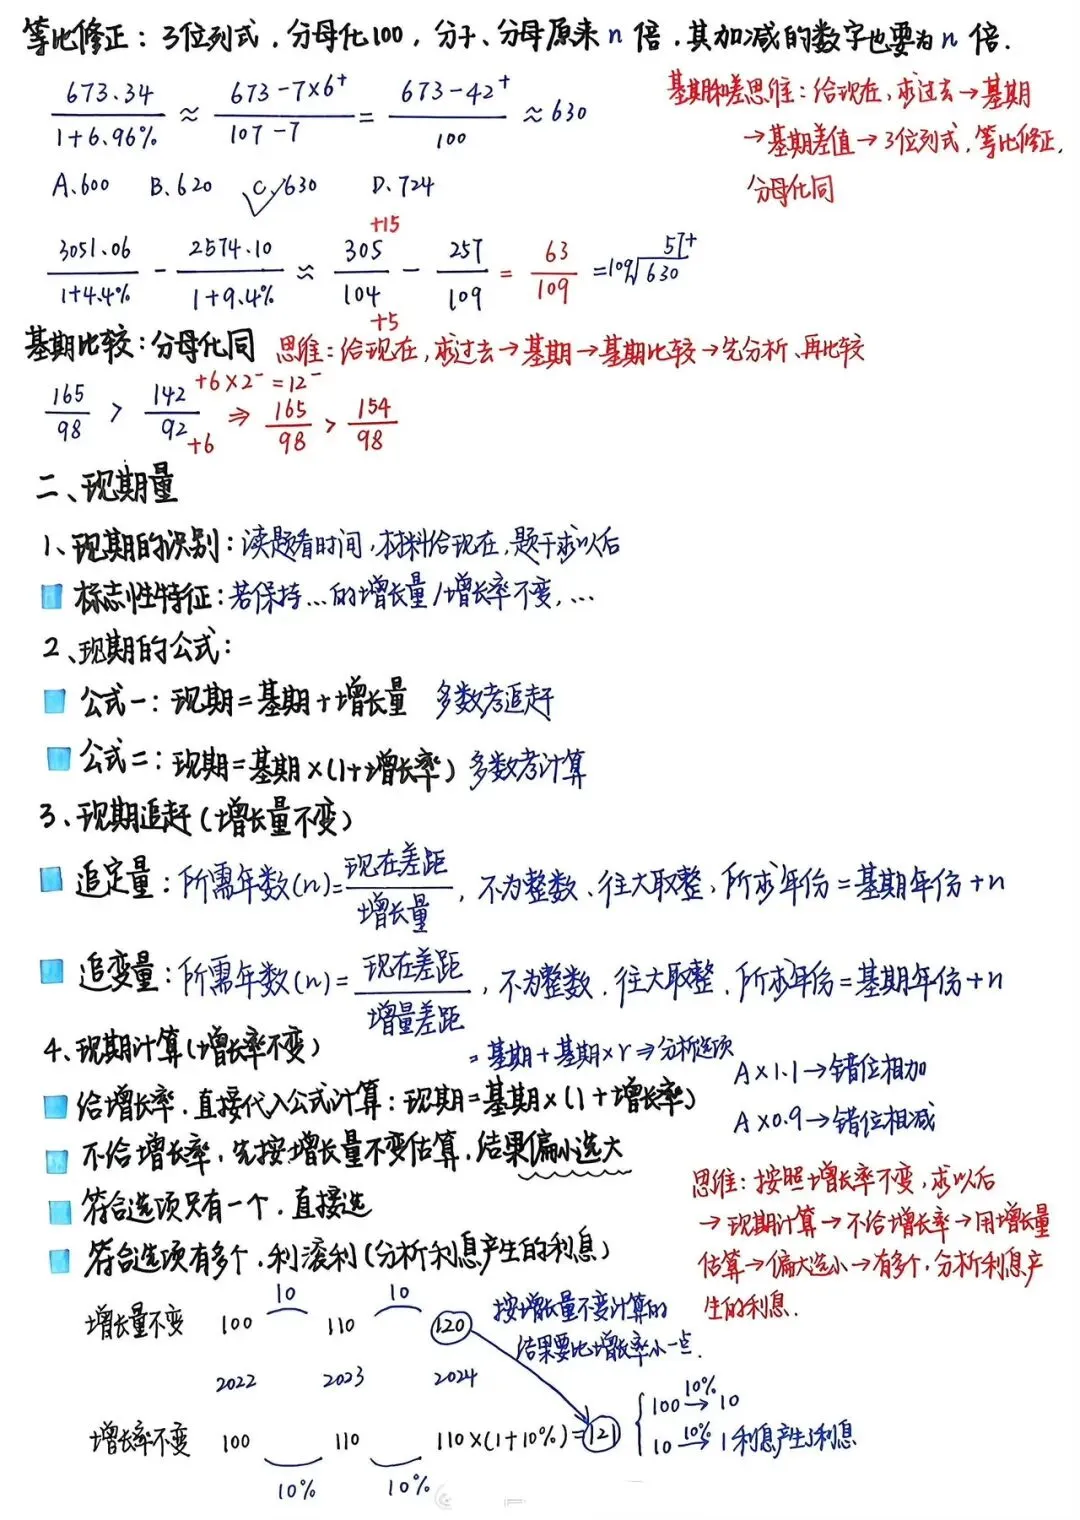 等比修正：3位列式，分母化100，分子、分母原来n倍，其加减的数字也要为n倍．
673.34/1+6.96% ≈ 673-7×6⁺/107-7 = 673-42⁺/100 ≈630
基期和差思维：给现在，求过去→基期
→基期差值→3位列式，等比修正，
分母化同
A.600 B.620 C.630 D.724
3051.06/1+4.4% - 2574.10/1+9.4% ≈ 305+15/104+5 - 257/109 = 63/109 =109√630 57⁺
基期比较：分母化同 思维：给现在，求过去→基期→基期比较→先分析、再比较
165/98 > 142+6×2⁻=12⁻/92+6 ⇒ 165/98 > 154/98
二、现期量
1、现期的识别：读题看时间，材料给现在，题干求以后
标志性特征：若保持…的增长量/增长率不变，…
2、现期的公式：
公式一：现期=基期+增长量 多数考追赶
公式二：现期=基期×(1+增长率) 多数考计算
3、现期追赶(增长量不变)
追定量：所需年数(n)=现在差距/增长量，不为整数、往大取整、所求年份=基期年份+n
追变量：所需年数(n)=现在差距/增量差距，不为整数、往大取整、所求年份=基期年份+n
4、现期计算(增长率不变)
=基期+基期×r⇒分析选项
A×1.1→错位相加
给增长率，直接代入公式计算：现期=基期×(1+增长率)
A×0.9→错位相减
不给增长率，先按增长量不变估算，结果偏小选大
符合选项只有一个，直接选
符合选项有多个，利滚利(分析利息产生的利息)
思维：按照增长率不变，求以后
→现期计算→不给增长率→用增长量
估算→偏大选小→有多个，分析利息产
生的利息．
10 10
增长量不变 100 110 120
按增长量不变计算的
结果要比增长率小一点．
2022 2023 2024
增长率不变 100 110 110×(1+10%)=121
10% 10%
100 10%→ 10
10 10%→ 1利息产生了利息